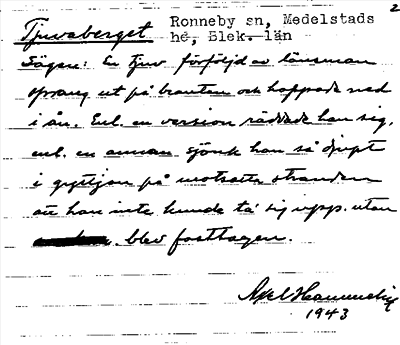 2
Ronneby sn, Medelstads
Tjuvaberget
hd, Blek. län
Sägen: En tjuv förföljd av länsman
sprang ut på branten och hoppade ned
i ån. Enl. en version räddade han sig,
enl. en annan sjönk han så djupt
i gyttjan på motsatta stranden
att han inte kunde ta sig upp. utan
blev fasttagen.
Axel
1943